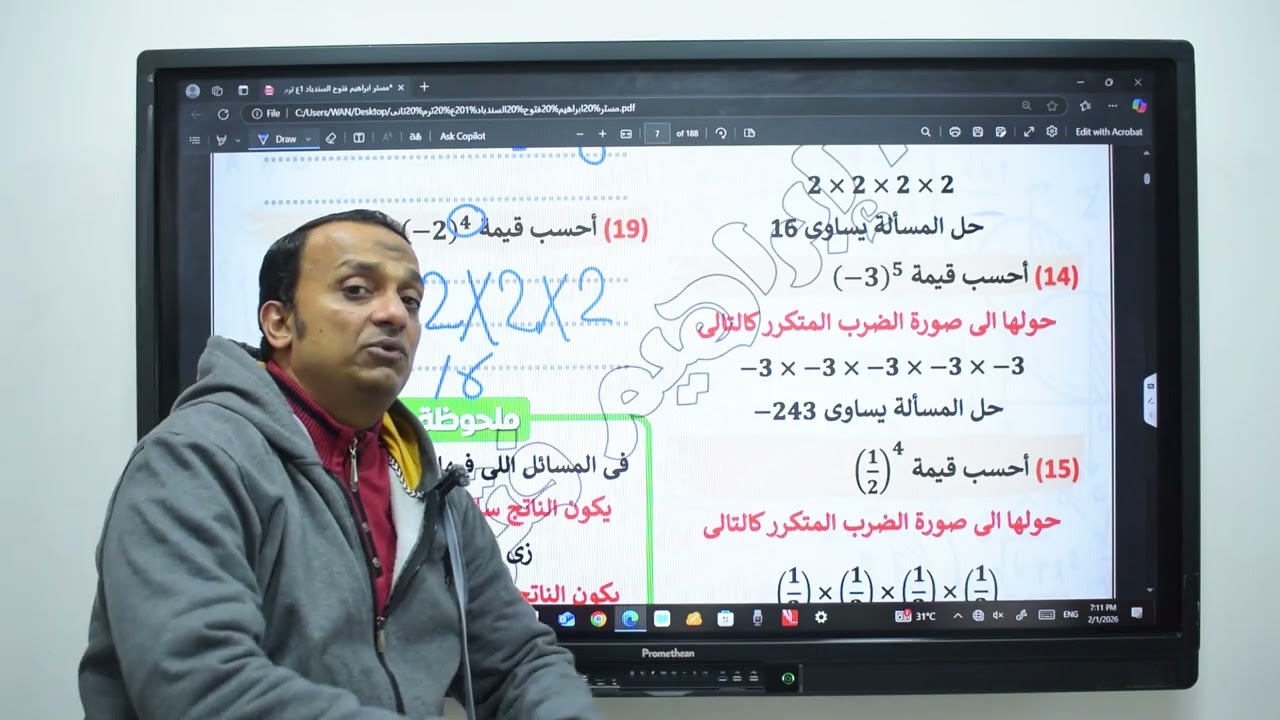 مستر ابراهيم فتوح السندباد 1ع ترم*
File C:/Users/WAN/Desktop/مستر%20ابراهيم%20فتوح%20السندباد%201ع%20ترم%20ثانى.pdf
Draw Ask Copilot 7 of 188 Edit with Acrobat
2 × 2 × 2 × 2
حل المسألة يساوى 16
(14) أحسب قيمة (−3)⁵
حولها الى صورة الضرب المتكرر كالتالى
−3 × −3 × −3 × −3 × −3
حل المسألة يساوى −243
(15) أحسب قيمة (1/2)⁴
حولها الى صورة الضرب المتكرر كالتالى
(1/2) × (1/2) × (1/2) × (1/2)
(19) أحسب قيمة (−2)⁴
2X2X2
ملحوظة
فى المسائل اللى
يكون الناتج
زى
يكون الناتج
31°C ENG 7:11 PM
2/1/2026
Promethean